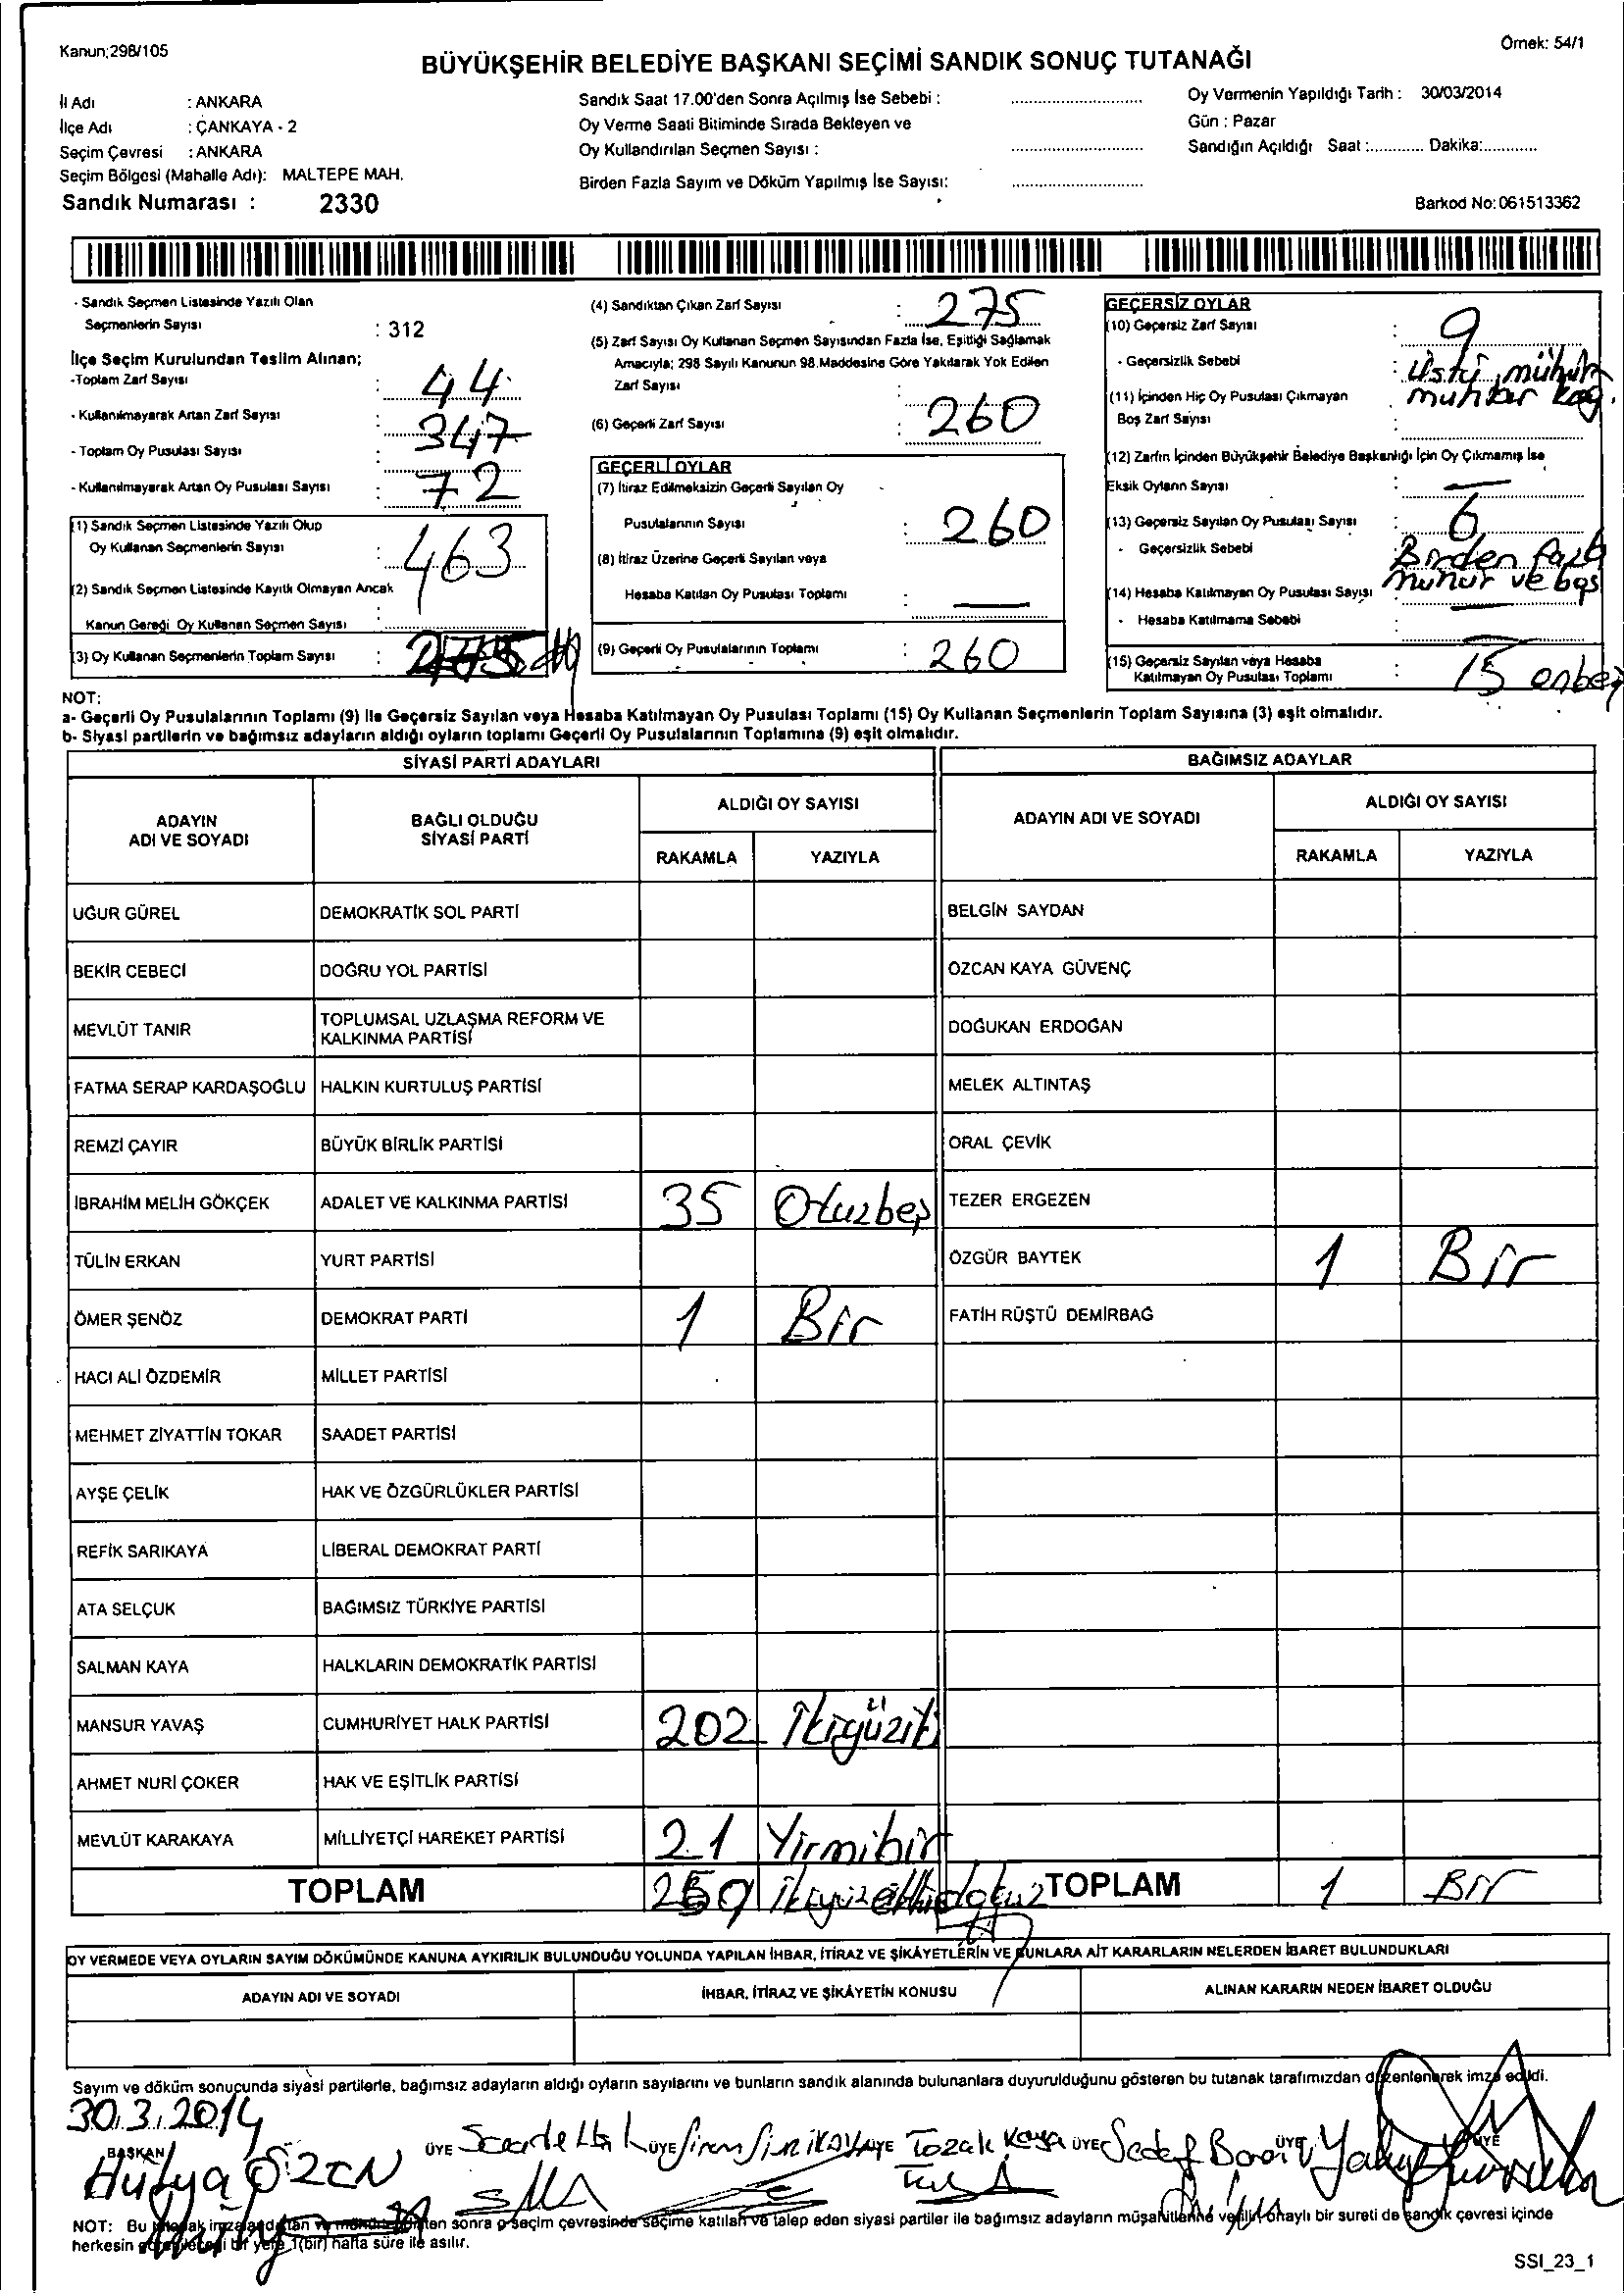 Kanun;298/105
Örnek: 54/1
BÜYÜKŞEHİR BELEDİYE BAŞKANI SEÇİMİ SANDIK SONUÇ TUTANAĞI
İl Adı : ANKARA
İlçe Adı : ÇANKAYA - 2
Seçim Çevresi : ANKARA
Seçim Bölgesi (Mahalle Adı): MALTEPE MAH.
Sandık Numarası : 2330
Sandık Saat 17.00'den Sonra Açılmış İse Sebebi :
Oy Verme Saati Bitiminde Sırada Bekleyen ve
Oy Kullandırılan Seçmen Sayısı :
Birden Fazla Sayım ve Döküm Yapılmış İse Sayısı:
Oy Vermenin Yapıldığı Tarih : 30/03/2014
Gün : Pazar
Sandığın Açıldığı Saat :............ Dakika:............
Barkod No:061513362
- Sandık Seçmen Listesinde Yazılı Olan
Seçmenlerin Sayısı : 312
İlçe Seçim Kurulundan Teslim Alınan;
-Toplam Zarf Sayısı : 44
- Kullanılmayarak Artan Zarf Sayısı : 347
- Toplam Oy Pusulası Sayısı : 72
- Kullanılmayarak Artan Oy Pusulası Sayısı :
(1) Sandık Seçmen Listesinde Yazılı Olup
Oy Kullanan Seçmenlerin Sayısı : 463
(2) Sandık Seçmen Listesinde Kayıtlı Olmayan Ancak
Kanun Gereği Oy Kullanan Seçmen Sayısı :
(3) Oy Kullanan Seçmenlerin Toplam Sayısı : 275
(4) Sandıktan Çıkan Zarf Sayısı : 275
(5) Zarf Sayısı Oy Kullanan Seçmen Sayısından Fazla İse, Eşitliği Sağlamak
Amacıyla; 298 Sayılı Kanunun 98.Maddesine Göre Yakılarak Yok Edilen
Zarf Sayısı :
(6) Geçerli Zarf Sayısı : 260
GEÇERLİ OYLAR
(7) İtiraz Edilmeksizin Geçerli Sayılan Oy
Pusulalarının Sayısı : 260
(8) İtiraz Üzerine Geçerli Sayılan veya
Hesaba Katılan Oy Pusulası Toplamı : —
(9) Geçerli Oy Pusulalarının Toplamı : 260
GEÇERSİZ OYLAR
(10) Geçersiz Zarf Sayısı : 9
- Geçersizlik Sebebi : üstü mühür
muhtar kağ.
(11) İçinden Hiç Oy Pusulası Çıkmayan
Boş Zarf Sayısı :
(12) Zarfın İçinden Büyükşehir Belediye Başkanlığı İçin Oy Çıkmamış İse
Eksik Oyların Sayısı : —
(13) Geçersiz Sayılan Oy Pusulası Sayısı : 6
- Geçersizlik Sebebi : Birden fazla
mühür ve boş
(14) Hesaba Katılmayan Oy Pusulası Sayısı : —
- Hesaba Katılmama Sebebi :
(15) Geçersiz Sayılan veya Hesaba
Katılmayan Oy Pusulası Toplamı : 15 onbeş
NOT:
a- Geçerli Oy Pusulalarının Toplamı (9) İle Geçersiz Sayılan veya Hesaba Katılmayan Oy Pusulası Toplamı (15) Oy Kullanan Seçmenlerin Toplam Sayısına (3) eşit olmalıdır.
b- Siyasi partilerin ve bağımsız adayların aldığı oyların toplamı Geçerli Oy Pusulalarının Toplamına (9) eşit olmalıdır.
SİYASİ PARTİ ADAYLARI
ADAYIN ADI VE SOYADI
BAĞLI OLDUĞU SİYASİ PARTİ
ALDIĞI OY SAYISI
RAKAMLA YAZIYLA
UĞUR GÜREL DEMOKRATİK SOL PARTİ
BEKİR CEBECİ DOĞRU YOL PARTİSİ
MEVLÜT TANIR TOPLUMSAL UZLAŞMA REFORM VE
KALKINMA PARTİSİ
FATMA SERAP KARDAŞOĞLU HALKIN KURTULUŞ PARTİSİ
REMZİ ÇAYIR BÜYÜK BİRLİK PARTİSİ
İBRAHİM MELİH GÖKÇEK ADALET VE KALKINMA PARTİSİ 35 Otuzbeş
TÜLİN ERKAN YURT PARTİSİ
ÖMER ŞENÖZ DEMOKRAT PARTİ 1 Bir
HACI ALİ ÖZDEMİR MİLLET PARTİSİ
MEHMET ZİYATTİN TOKAR SAADET PARTİSİ
AYŞE ÇELİK HAK VE ÖZGÜRLÜKLER PARTİSİ
REFİK SARIKAYA LİBERAL DEMOKRAT PARTİ
ATA SELÇUK BAĞIMSIZ TÜRKİYE PARTİSİ
SALMAN KAYA HALKLARIN DEMOKRATİK PARTİSİ
MANSUR YAVAŞ CUMHURİYET HALK PARTİSİ 202 İkiyüziki
AHMET NURİ ÇOKER HAK VE EŞİTLİK PARTİSİ
MEVLÜT KARAKAYA MİLLİYETÇİ HAREKET PARTİSİ 21 Yirmibir
TOPLAM 259
BAĞIMSIZ ADAYLAR
ADAYIN ADI VE SOYADI
ALDIĞI OY SAYISI
RAKAMLA YAZIYLA
BELGİN SAYDAN
ÖZCAN KAYA GÜVENÇ
DOĞUKAN ERDOĞAN
MELEK ALTINTAŞ
ORAL ÇEVİK
TEZER ERGEZEN
ÖZGÜR BAYTEK 1 Bir
FATİH RÜŞTÜ DEMİRBAĞ
TOPLAM 1 Bir
OY VERMEDE VEYA OYLARIN SAYIM DÖKÜMÜNDE KANUNA AYKIRILIK BULUNDUĞU YOLUNDA YAPILAN İHBAR, İTİRAZ VE ŞİKÂYETLERİN VE BUNLARA AİT KARARLARIN NELERDEN İBARET BULUNDUKLARI
ADAYIN ADI VE SOYADI İHBAR, İTİRAZ VE ŞİKÂYETİN KONUSU ALINAN KARARIN NEDEN İBARET OLDUĞU
Sayım ve döküm sonucunda siyasi partilerle, bağımsız adayların aldığı oyların sayılarını ve bunların sandık alanında bulunanlara duyurulduğunu gösteren bu tutanak tarafımızdan düzenlenerek imza edildi.
30.3.2014
BAŞKAN ÜYE ÜYE ÜYE ÜYE ÜYE ÜYE
Hülya ÖZEN
NOT: Bu sonra seçim çevresinde seçime katılan ve talep eden siyasi partiler ile bağımsız adayların müşahitlerine onaylı bir sureti de sandık çevresi içinde
herkesin bir yere 1(bir) hafta süre ile asılır.
SSI_23_1